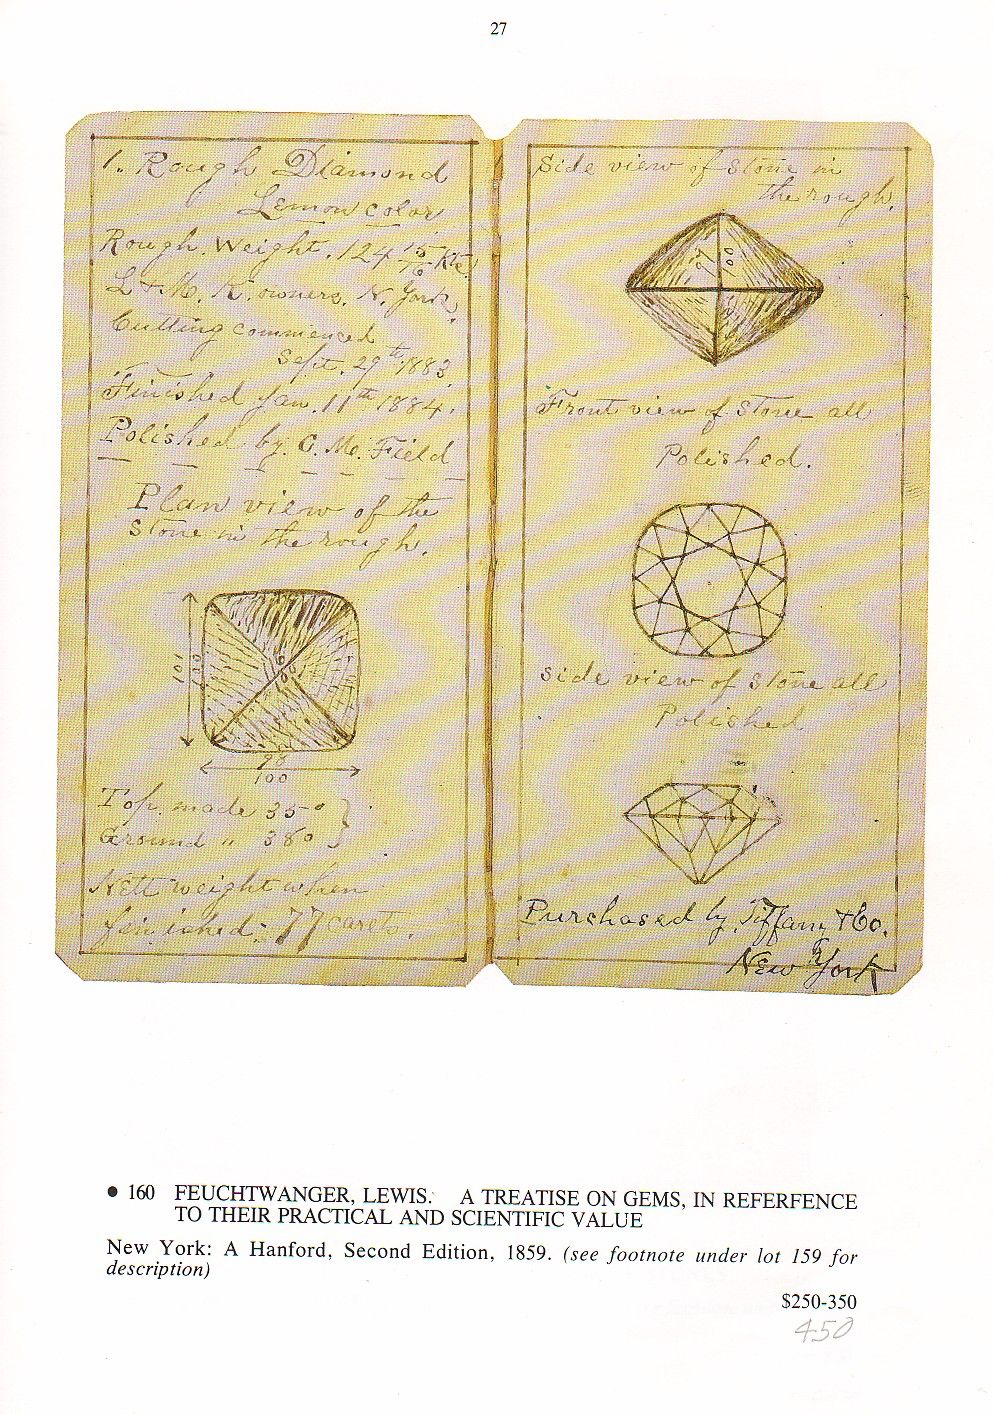 27
1. Rough Diamond
Lemon color
Rough. Weight. 124 15/16 Kts.
L & M. K. owners. N. York.
Cutting commenced
Sept. 29th 1883.
Finished Jan. 11th 1884.
Polished by C. M. Field
Plan view of the
Stone in the rough.
101
100
98
100
Top. made 35°
Ground " 38°
Nett weight when
finished: 77 carets.
Side view of Stone in
the rough.
100
Front view of Stone all
Polished.
Side view of Stone all
Polished
Purchased by Tiffany & Co.
New York
• 160 FEUCHTWANGER, LEWIS. A TREATISE ON GEMS, IN REFERFENCE
TO THEIR PRACTICAL AND SCIENTIFIC VALUE
New York: A Hanford, Second Edition, 1859. (see footnote under lot 159 for
description)
$250-350
450